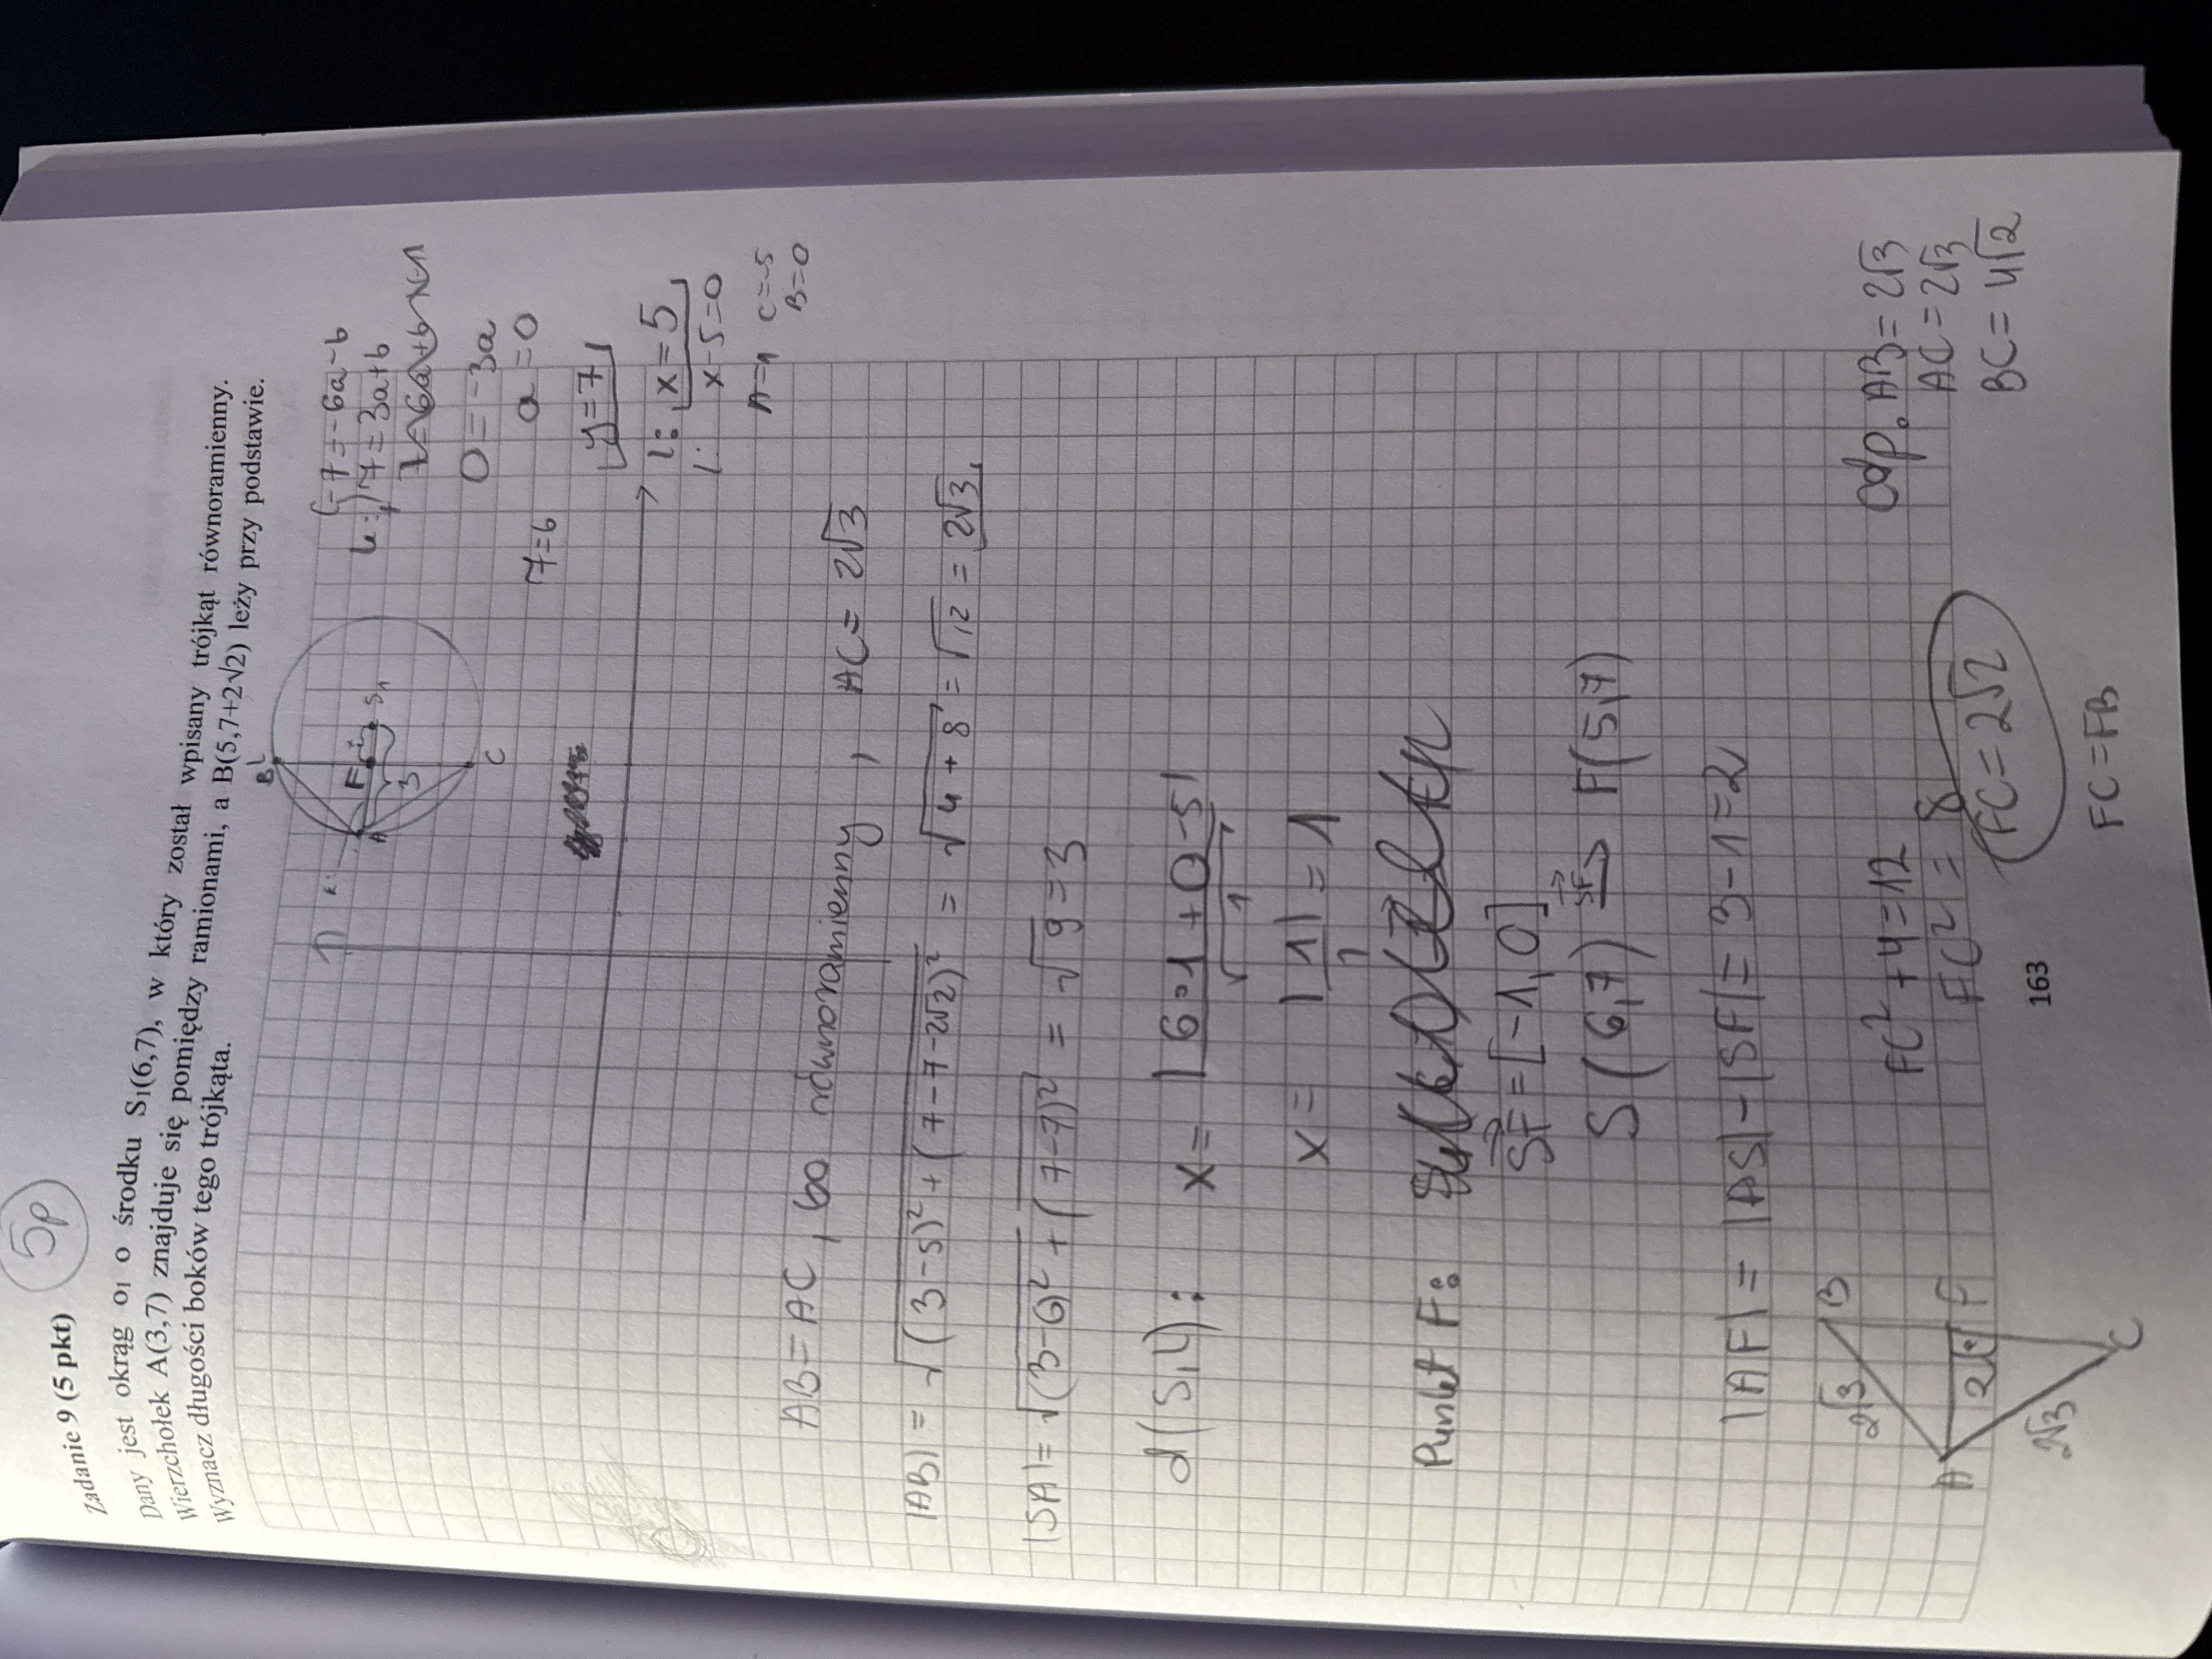 5p
Zadanie 9 (5 pkt)
Dany jest okrąg o₁ o środku S₁(6,7), w który został wpisany trójkąt równoramienny.
Wierzchołek A(3,7) znajduje się pomiędzy ramionami, a B(5,7+2√2) leży przy podstawie.
Wyznacz długości boków tego trójkąta.
k:
B
F
1
S₁
A
3
C
-7=-6a-b
k: 7=3a+b
0=-3a
a=0
7=b
y=7
l: x=5
l: x-5=0
A=1 C=-5
B=0
AB=AC, bo równoramienny, AC=2√3
|AB|=√(3-5)²+(7-7-2√2)² = √4+8 = √12 = 2√3
|SA|=√(3-6)²+(7-7)² = √9=3
d(S,l): x= |6·1+0-5| / √1
x= |1| / 1 = 1
Punkt F:
SF=[-1,0]
S(6,7) SF→ F(5,7)
|AF|=|AS|-|SF|=3-1=2
2√3
B
A
2
F
2√3
C
FC²+4=12
FC²=8
FC=2√2
FC=FB
odp. AB=2√3
AC=2√3
BC=4√2
163